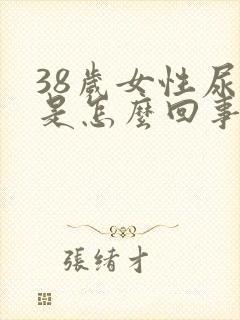 38歲女性尿
是怎麼回事
張緒才